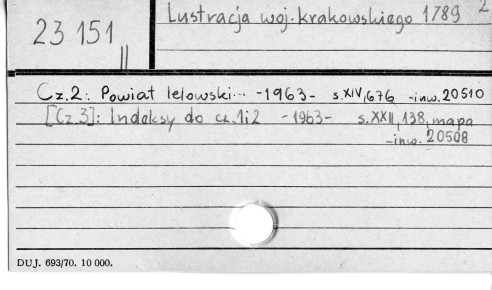 Lustracja woj. krakowskiego 1789 2
23 151
||
Cz. 2: Powiat lelowski... -1963- s. XIV, 676 -inw. 20510
[Cz. 3]: Indeksy do cz. 1i2 -1963- s. XXII, 138, mapa
-inw. 20508
DUJ. 693/70. 10 000.